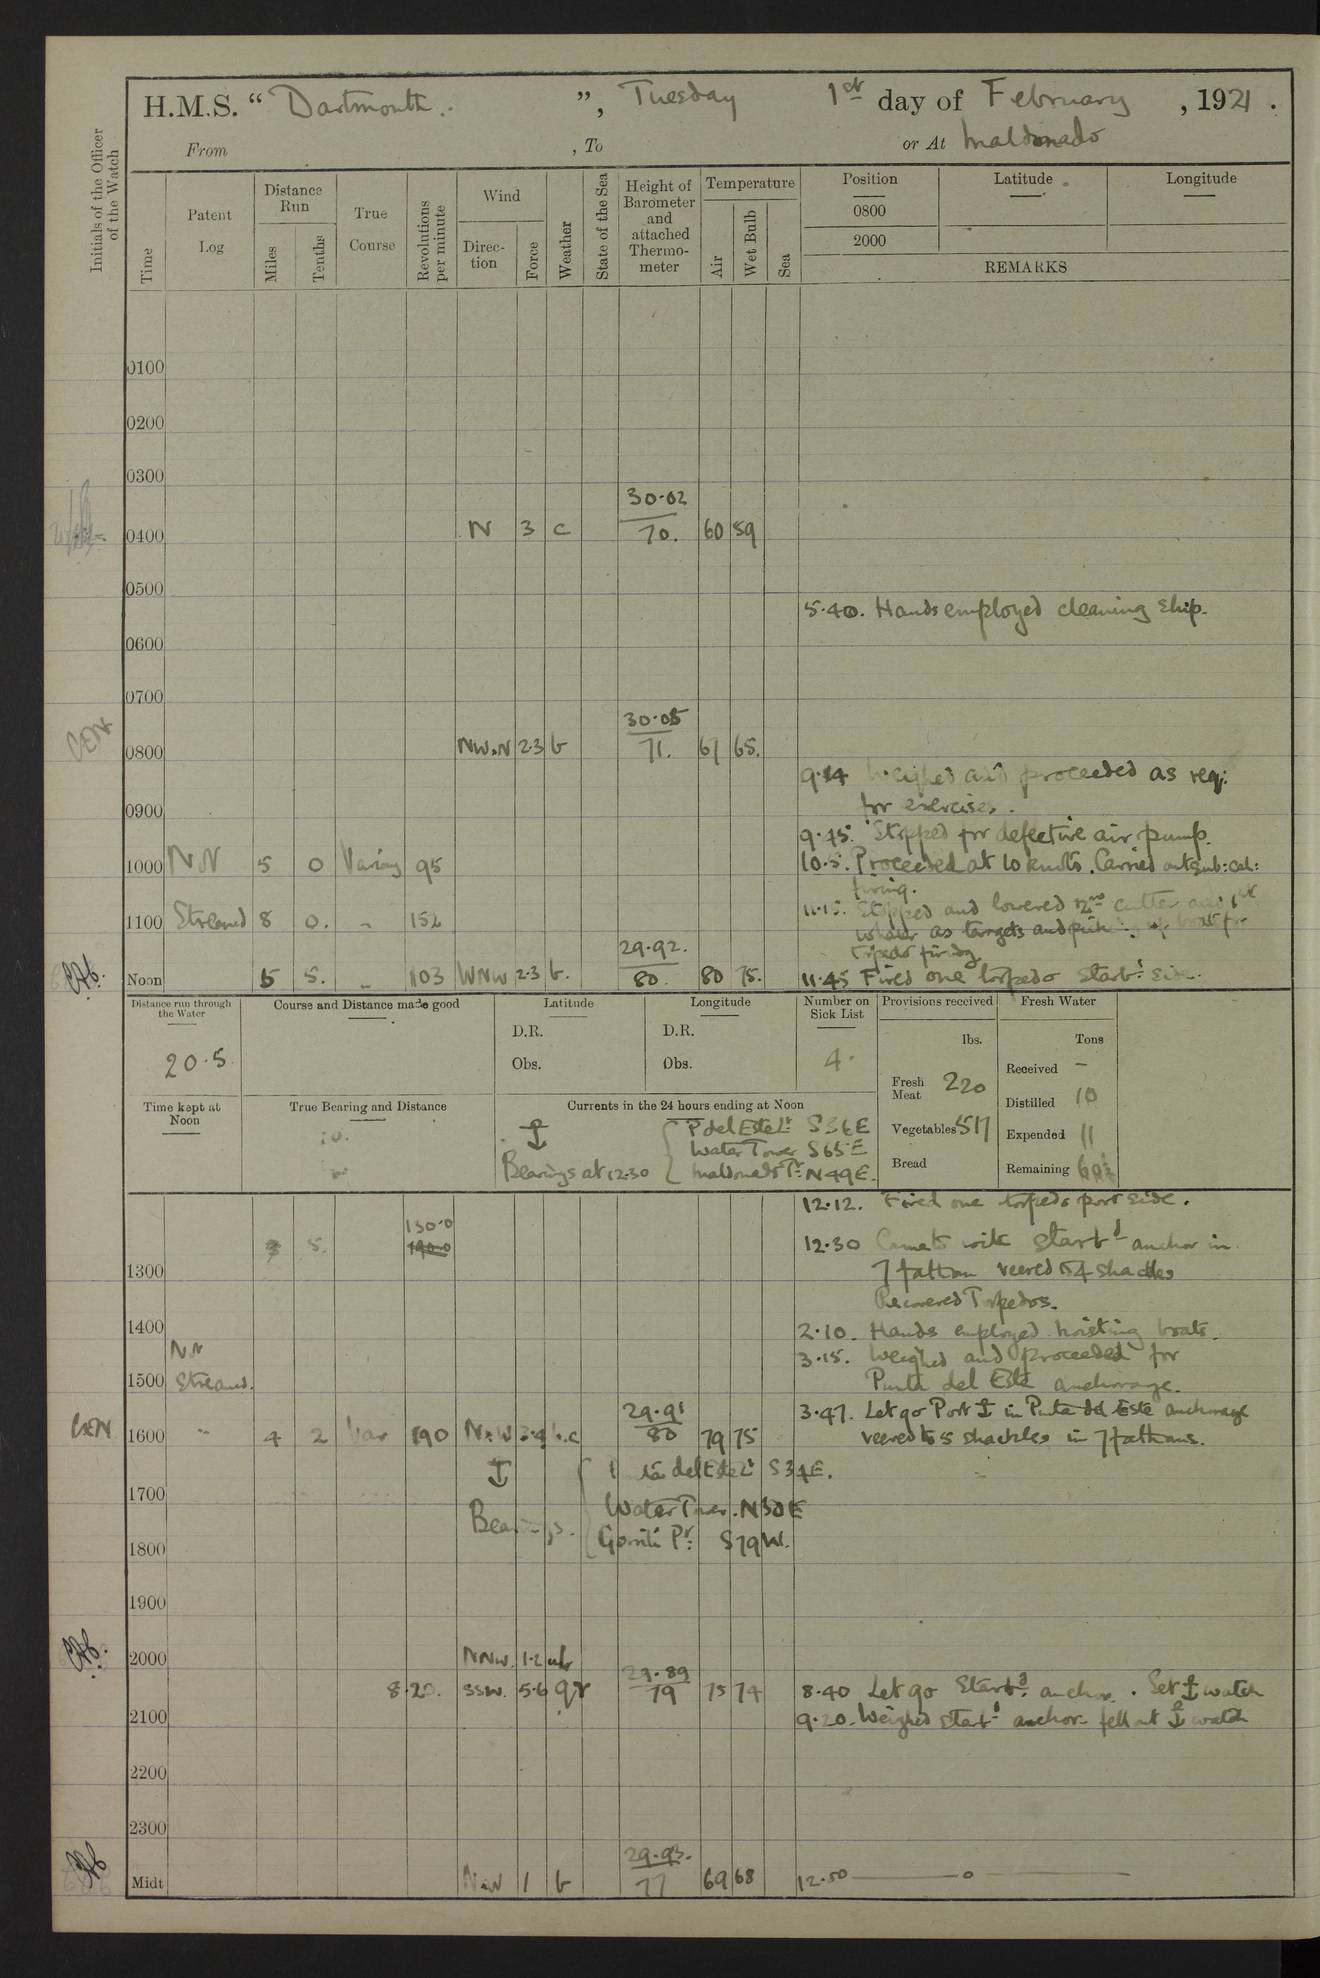 H.M.S. “ Dartmouth. ”, Tuesday 1st day of February , 1921 .
From , To or At Maldonado
Initials of the Officer of the Watch
Time
Patent Log
Distance Run
Miles
Tenths
True Course
Revolutions per minute
Wind
Direc-tion
Force
Weather
State of the Sea
Height of Barometer and attached Thermo-meter
Temperature
Air
Wet Bulb
Sea
Position Latitude Longitude
0800
2000
REMARKS
0100
0200
0300
30.02
0400 N 3 c 70. 60 59
0500
5.40. Hands employed cleaning ship.
0600
0700
CEN
30.05
0800 NW.N 2.3 b 71. 67 65.
9.14 Weighed and proceeded as req:
for exercises.
0900
9.45. Stopped for defective air pump.
1000 NN 5 0 Varing 95 10.5. Proceeded at 10 knots. Carried out sub: cal:
firing.
11.15. Stopped and lowered 2nd cutter and 1st
1100 Streamed 8 0. " 152
whaler as targets and picking up boat for
torpedo firing.
29.92.
Noon 5 5. " 103 WNW 2.3 b. 80. 80 75. 11.45 Fired one torpedo Starbd: side.
Distance run through the Water
20.5
Course and Distance made good
Latitude
D.R.
Obs.
Longitude
D.R.
Obs.
Number on Sick List
4.
Provisions received
lbs.
Fresh Meat 220
Vegetables 517
Bread
Fresh Water
Tons
Received -
Distilled 10
Expended 11
Remaining
Time kept at Noon
True Bearing and Distance
Currents in the 24 hours ending at Noon
P del Este Lt: S36E
Water Tower S65E
Bearings at 12.30 Maldonado Pt: N49E.
12.12. Fired one torpedo port side.
130.0
190.0
5.
12.30 Came to with Starbd anchor in
1300 7 fathom veered to 4 shackles
Recovered Torpedos.
1400 2.10. Hands employed hoisting boats.
NN
3.15. Weighed and proceeded for
1500 Streamed. Punta del Este anchorage.
CEN
29.91
3.47. Let go Port ⚓ in Punta del Este anchorage
1600 " 4 2 Var 190 N.W 3.4 b.c 80 79 75 veered to 5 shackles in 7 fathoms.
⚓ Punta del Este Lt S34E.
1700
Bearings. Water Tower. N30E
Gorriti Pt: S79W.
1800
1900
2000 NNW. 1.2
29.89
8.20. SSW. 5.6 qr 79 75 74 8.40 Let go Starbd: anchor. Set ⚓ watch
2100 9.20. Weighed Starbd anchor fell out ⚓ watch
2200
2300
29.93.
Midt 1 b 77 69 68 12.50 ——o——